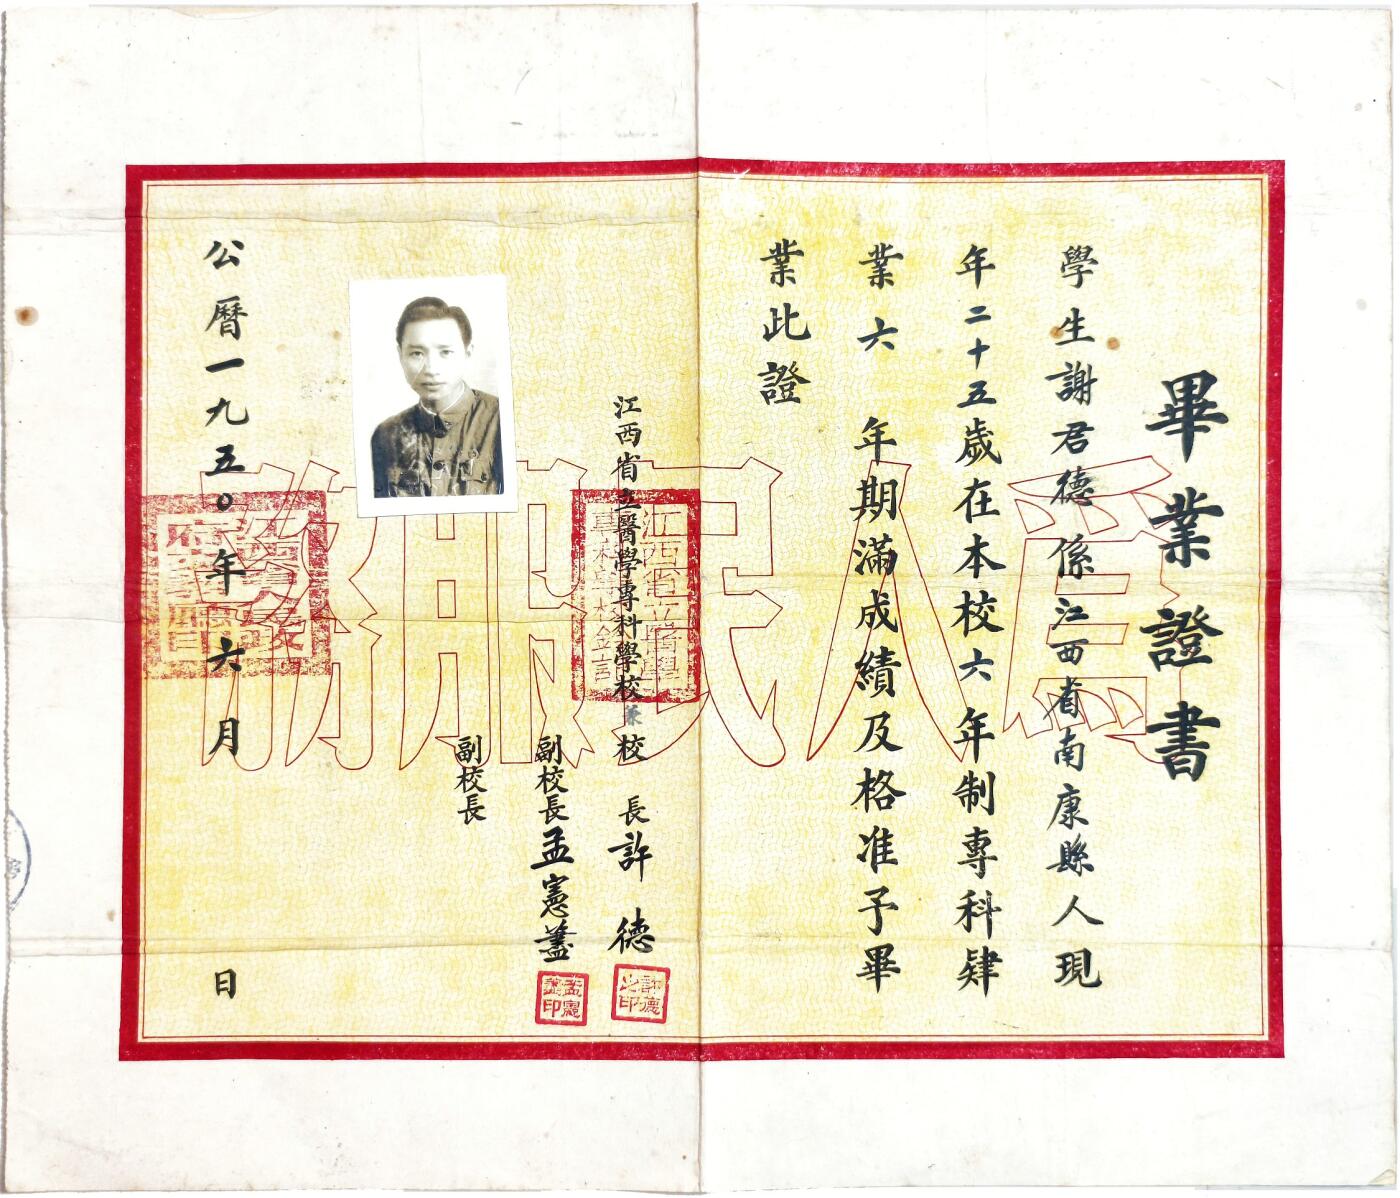 畢業證書
學生謝君德係江西省南康縣人現
年二十五歲在本校六年制專科肄
業六 年期滿成績及格准予畢
業此證
江西省立醫學專科學校兼校 長許 德
副校長孟憲藎
副校長
公曆一九五〇年六月 日
為人民服務
江西省立醫學
專科學校鈐記
許德之印
孟憲藎印